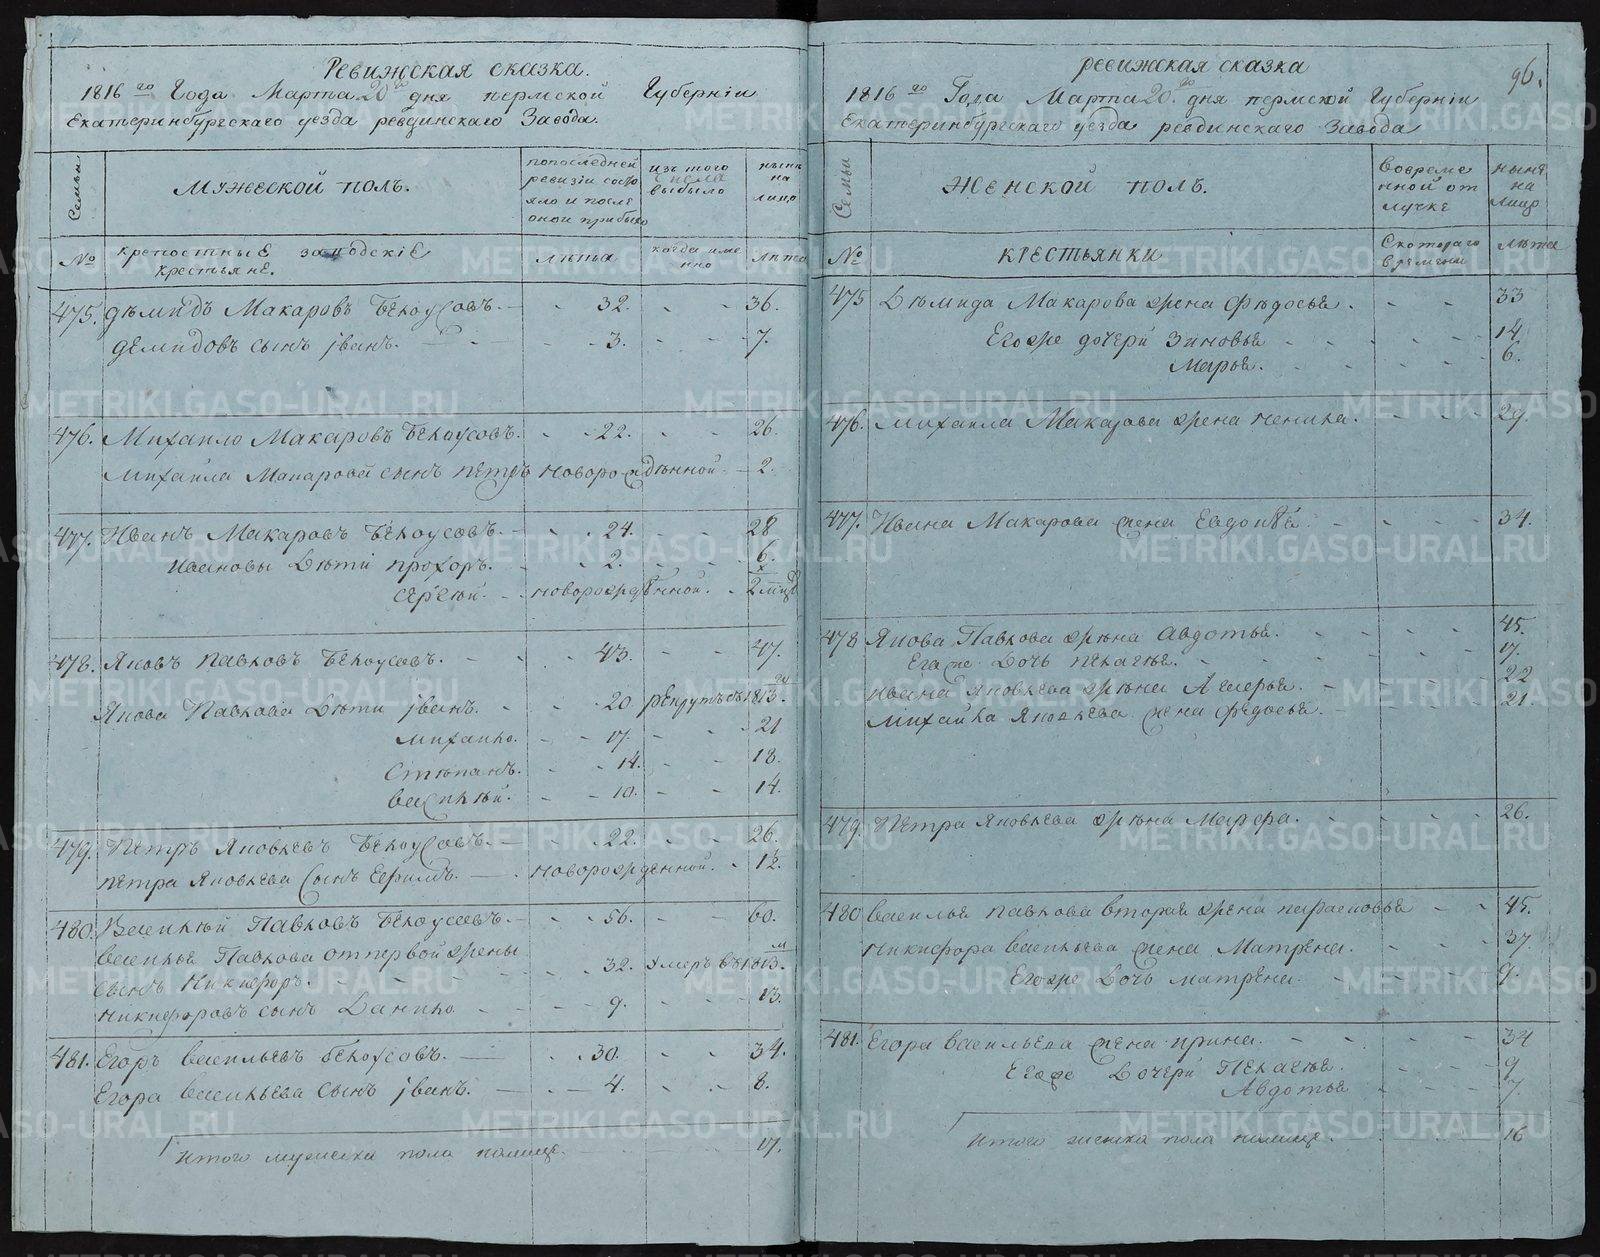 Ревижская сказка.
1816го Года Марта 20го дня пермской Губерніи
Екатеринбургскаго уезда ревдинскаго Завода.
Семьи
Мужеской полъ.
попоследней ревизіи состояло и после оной прибыло
изъ того числа выбыло
нынѣ на лицо
№
крепостныЕ заводскіЕ крестьянЕ.
лѣта
когда именно
лѣта
475. дѣмидъ Макаровъ Белоусовъ. 32. 36.
демидовъ сынъ іванъ. 3. 7.
476. Михаило Макаровъ Белоусовъ. 22. 26.
Михаила Макарова сынъ петръ новорожденной 2.
477. Иванъ Макаровъ Белоусовъ. 24. 28
Ивановы дѣти прохоръ. 2. 6.
сергѣй. новорожденной. 2 мѣц
478. Яковъ Павловъ Белоусовъ. 43. 47.
Якова Павлова дѣти іванъ. 20 рекрутъ въ 1813.
михаило. 17. 21
Степанъ. 14. 18.
василѣй. 10. 14.
479. Петръ Яковлевъ Белоусовъ. 22. 26.
петра Яковлева Сынъ Ефимъ. новорожденной. 12.
480. Василѣй Павловъ Белоусовъ. 56. 60.
василья Павлова отпервой жены
сынъ Никифоръ. 32. умеръ въ 1813.
никифоровъ сынъ Данило 9. 13.
481. Егоръ васильевъ белоусовъ. 30. 34.
Егора васильева Сынъ іванъ. 4. 8.
Итого мужеска пола налице. 17.
ревижская сказка
96.
1816го Года Марта 20го дня пермской Губерніи
Екатеринбургскаго уезда ревдинскаго Завода
Семьи
Женской полъ.
вовременной отлучке
нынѣ на лицо
№
крестьянки
Скотораго времени
лѣта
475 Дѣмида Макарова жена Федосья. 33
Егоже дочери Зиновья 14.
Марья. 6.
476. михаила Макарова жена ненила. 29.
477. Ивана Макарова жена Евдокѣя 34.
478 Якова Павлова жена Авдотья. 45.
Егоже Дочь пелагья. 17.
ивана Яковлева жена 22
михаила Яковлева жена федосья. 21.
479. Петра Яковлева жена Марфа. 26.
480 василья павлова вторая жена парасковья 45.
никифора васильева жена Матрена. 37.
Егоже Дочь матрена. 9.
481. Егора васильева жена ирина. 34
Егоже Дочери Пелагья. 9
Авдотья 7.
Итого женска пола налице. 16
METRIKI.GASO-URAL.RU